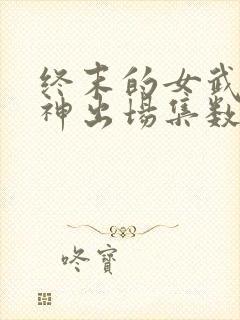 终末的女武
神出场集数
咚寶